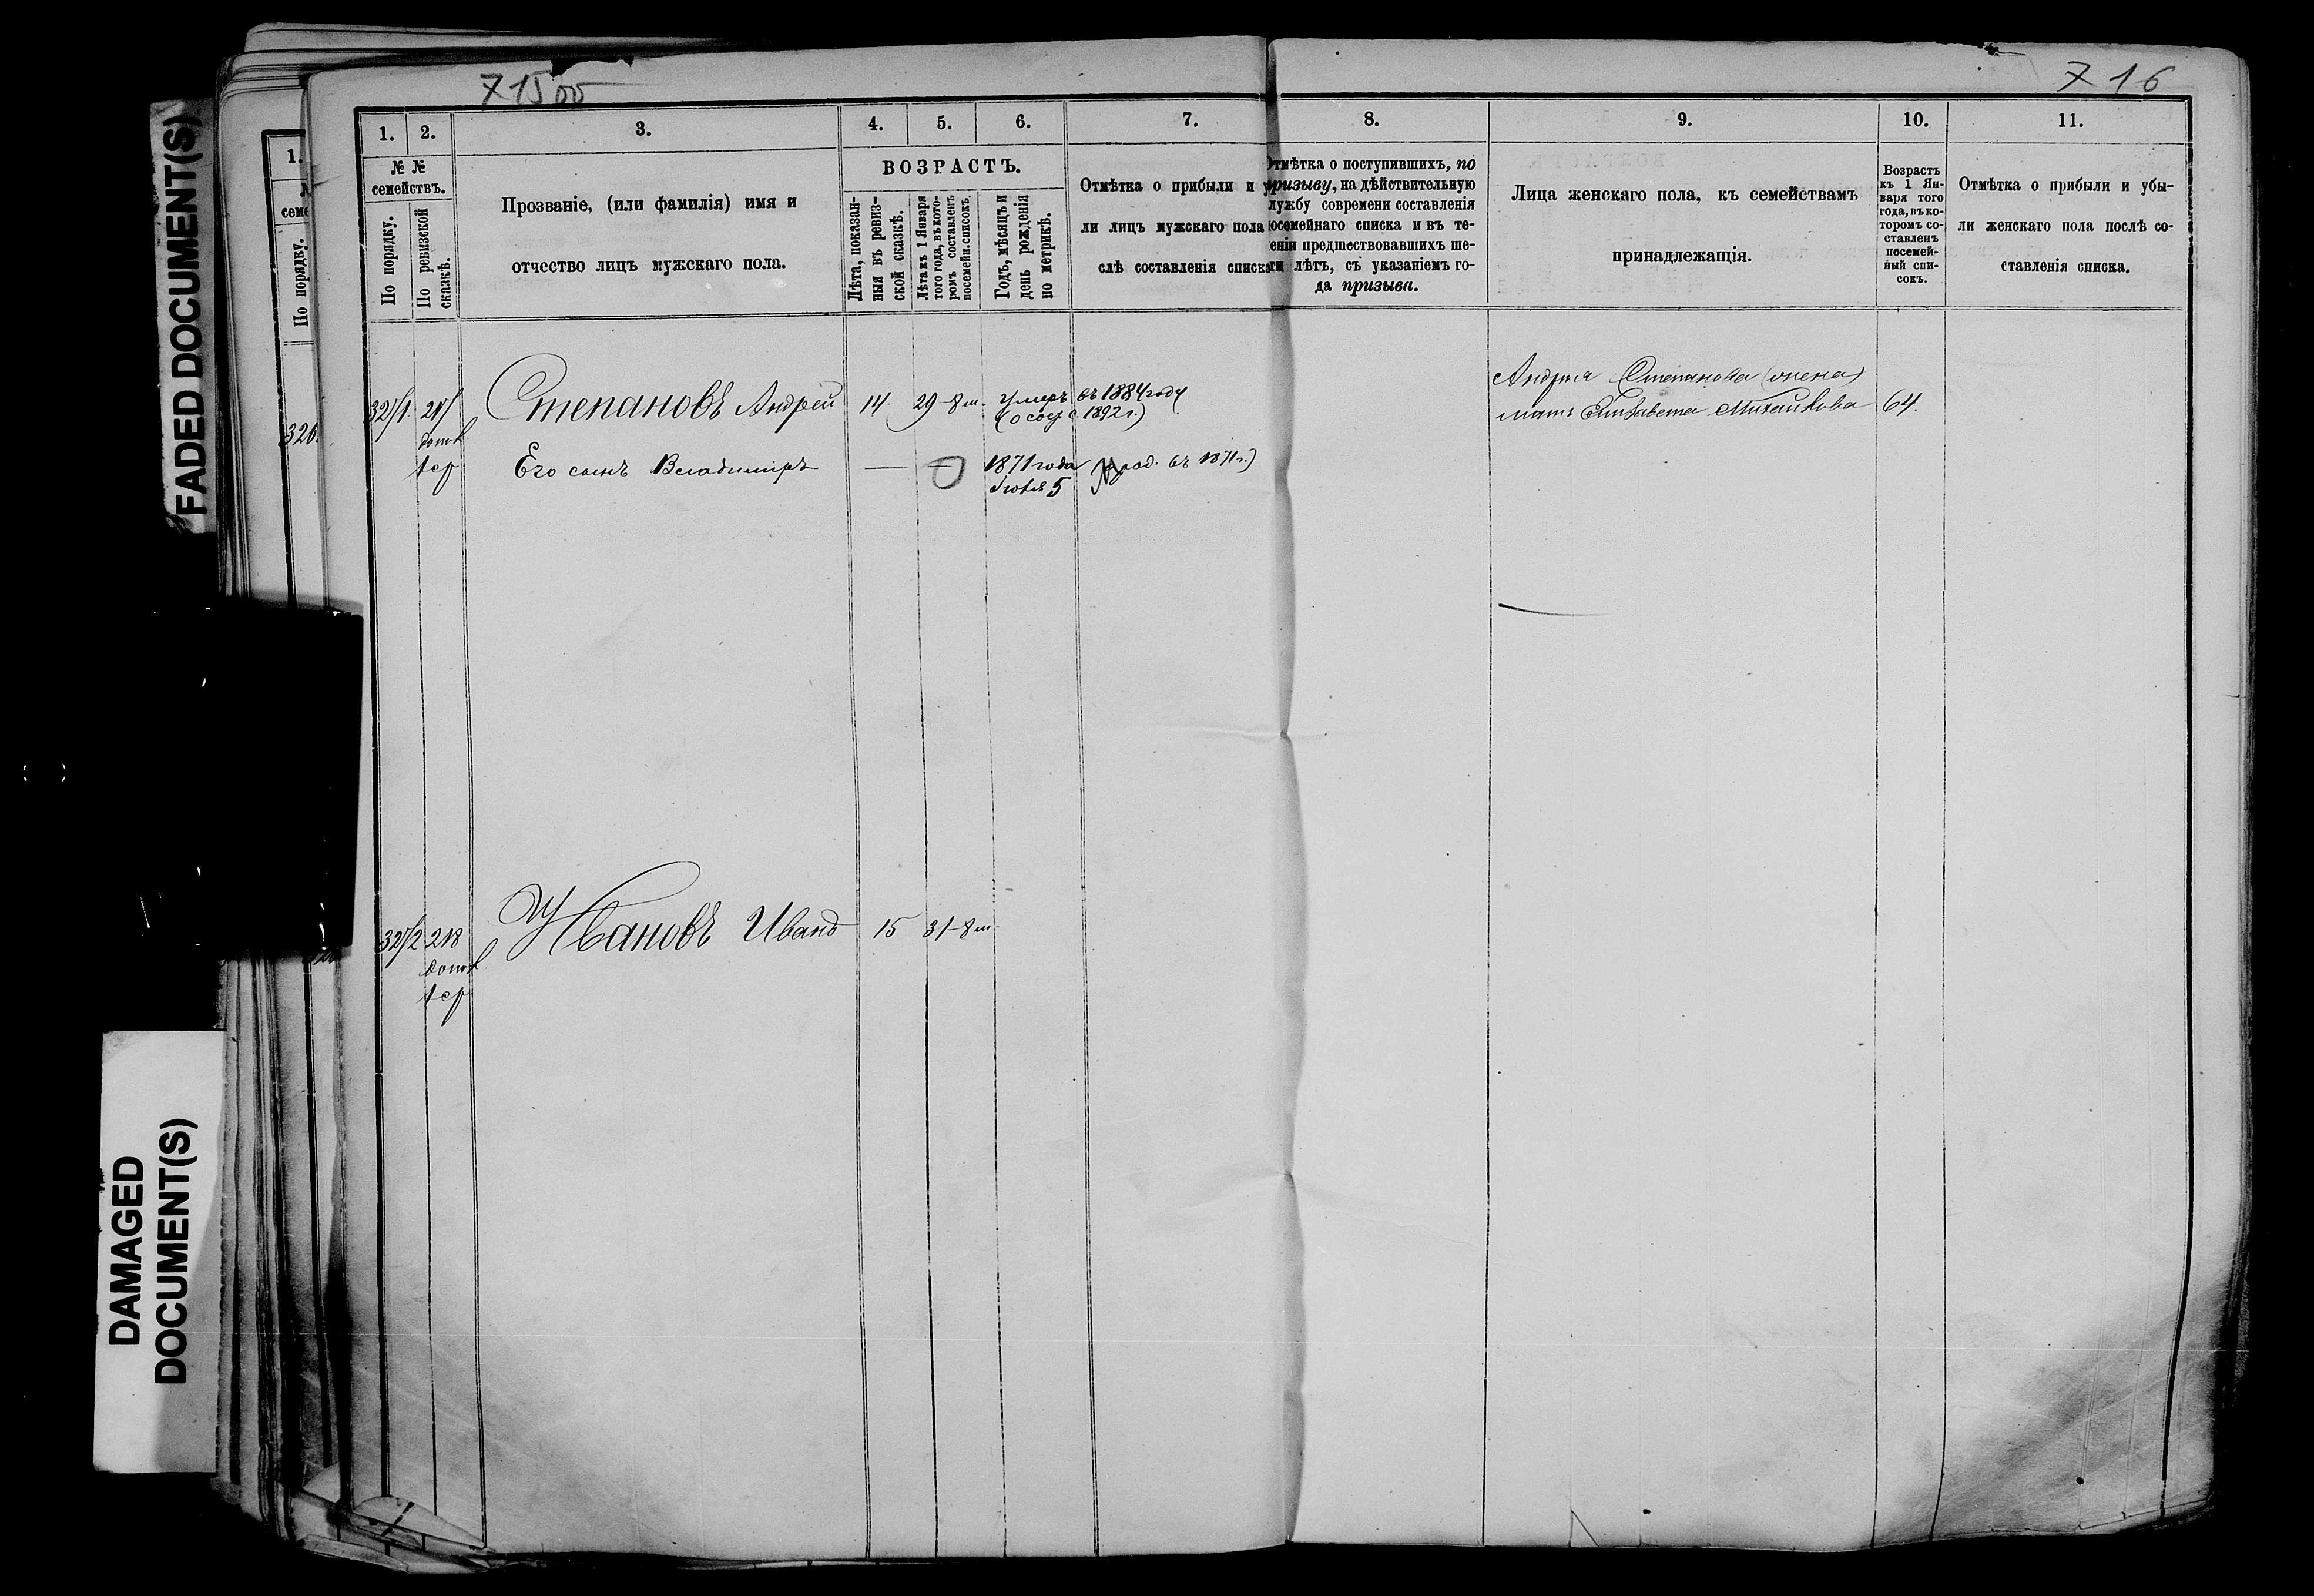 FADED DOCUMENT(S)
DAMAGED
DOCUMENT(S)
715 об
716
1.
2.
3.
4.
5.
6.
7.
8.
9.
10.
11.
№ №
семействъ.
По порядку.
По ревизской
сказкѣ.
Прозваніе, (или фамилія) имя и
отчество лицъ мужскаго пола.
ВОЗРАСТЪ.
Лѣта, показан-
ныя въ ревиз-
ской сказкѣ.
Лѣта къ 1 Января
того года, въ кото-
ромъ составленъ
посемейн. списокъ.
Годъ, мѣсяцъ и
день рожденія
по метрикѣ.
Отмѣтка о прибыли и у
ли лицъ мужскаго пола
слѣ составленія списка
Отмѣтка о поступившихъ, по
призыву, на дѣйствительную
службу современи составленія
посемейнаго списка и въ те-
ченіи предшествовавшихъ ше-
сти лѣтъ, съ указаніемъ го-
да призыва.
Лица женскаго пола, къ семействамъ
принадлежащія.
Возрастъ
къ 1 Ян-
варя того
года, въ ко-
торомъ со-
ставленъ
посемей-
ный спи-
сокъ.
Отмѣтка о прибыли и убы-
ли женскаго пола послѣ со-
ставленія списка.
1.
По порядку.
326
3271 217 Степановъ Андрей 14 29-8 м. Умеръ въ 1884 году
1892 г.)
Его сынъ Владиміръ — 1871 года род. въ 1871 г.)
5
Андрея Степанова
мать Елизавета Михайлова 64.
3272 218 Ивановъ Иванъ 15 31-8 м